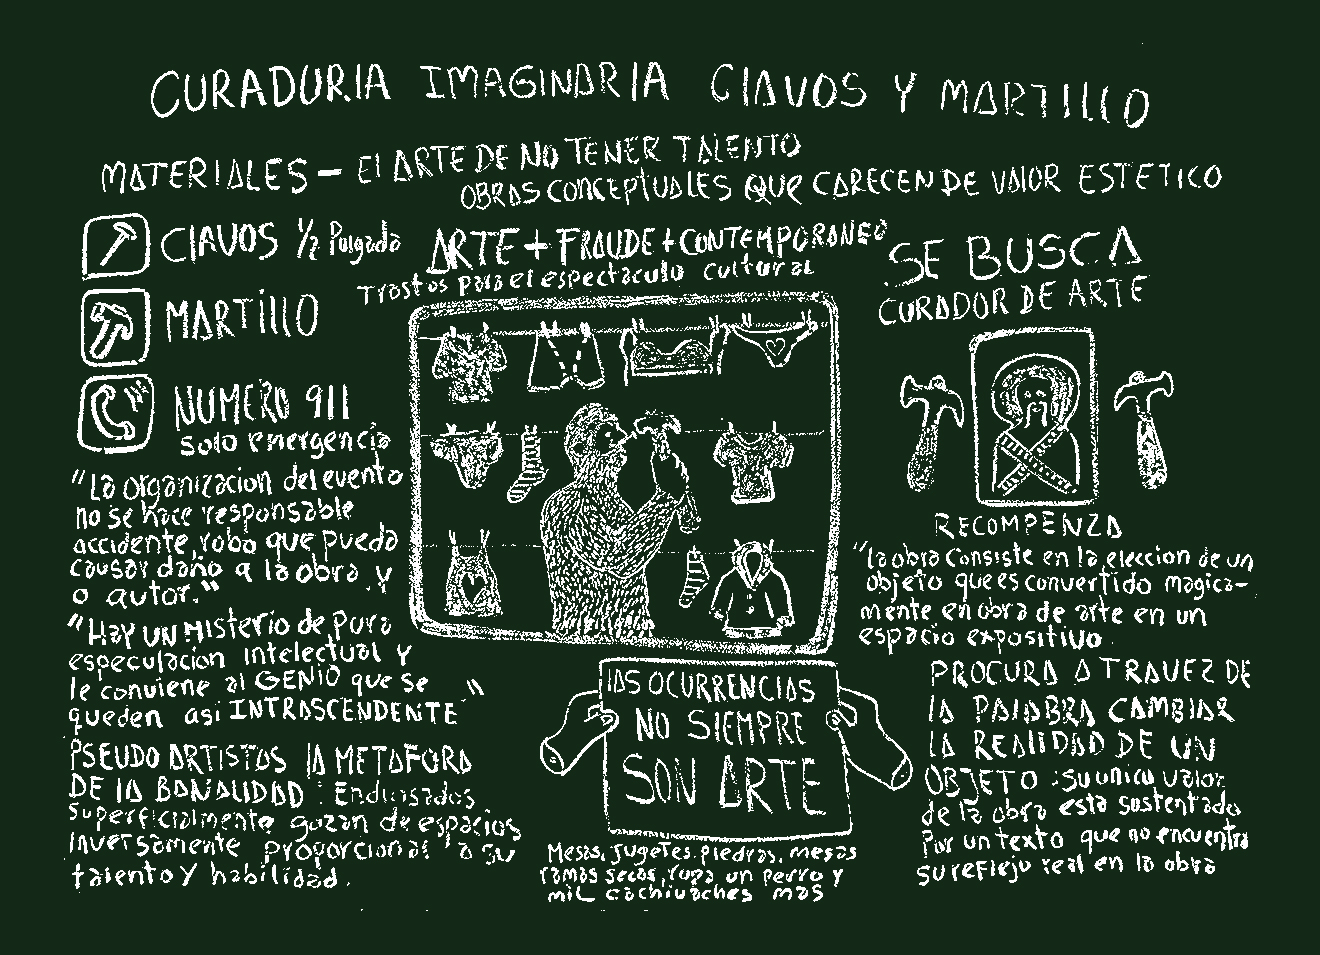 CURADURIA IMAGINARIA CLAVOS Y MARTILLO
MATERIALES - El ARTE DE NO TENER TALENTO
OBRAS CONCEPTUALES QUE CARECEN DE VALOR ESTETICO
CLAVOS 1/2 Pulgada
MARTILLO
NUMERO 911
solo emergencia
ARTE + FRAUDE + CONTEMPORANEO
Trastos para el espectaculo cultural
SE BUSCA
CURADOR DE ARTE
RECOMPENZA
"La organizacion del evento
no se hace responsable
accidente, robo que pueda
causar daño a la obra y
o autor."
"HAY UN MISterio de pura
especulacion intelectual Y
le conviene al GENIO que se
queden asi INTRASCENDENTE"
PSEUDO ARTISTAS LA METAFORA
DE LA BANALIDAD : Endiosados
superficialmente gozan de espacios
inversamente proporcional a su
talento y habilidad.
LAS OCURRENCIAS
NO SIEMPRE
SON ARTE
Mesas, jugetes, piedras, mesas
ramas secas, ropa, un perro y
mil cachivaches mas
"La obra consiste en la eleccion de un
objeto que es convertido magica-
mente en obra de arte en un
espacio expositivo.
PROCURA A TRAVEZ DE
LA PALABRA CAMBIAR
LA REALIDAD DE UN
OBJETO : su unico valor
de la obra esta sustentado
Por un texto que no encuentra
su reflejo real en la obra